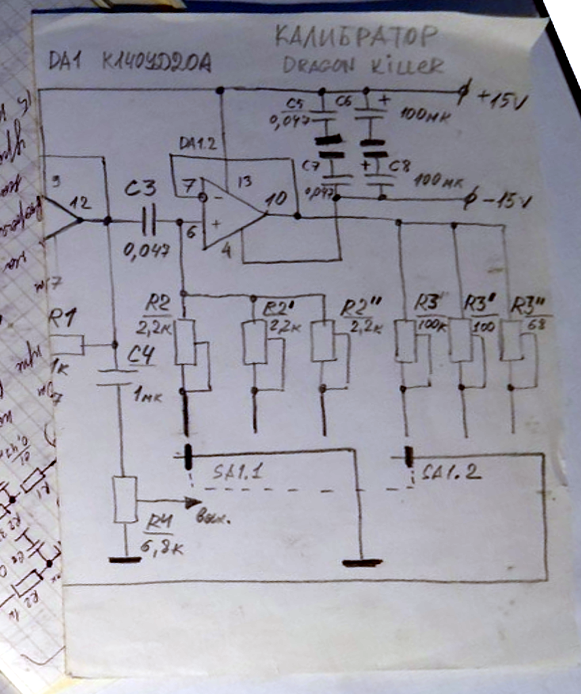 КАЛИБРАТОР
DA1 К140УД20А
DRAGON KILLER
+15V
C5
0,047
C6
+
100мк
DA1.2
C7
0,047
+
C8
100мк
-15V
12
C3
0,047
7
-
13
10
6
+
4
R1
1к
C4
1мк
R2
2,2к
R2'
2,2к
R2"
2,2к
R3
100к
R3'
100
R3"
68
SA1.1
SA1.2
R4
6,8к
вых.